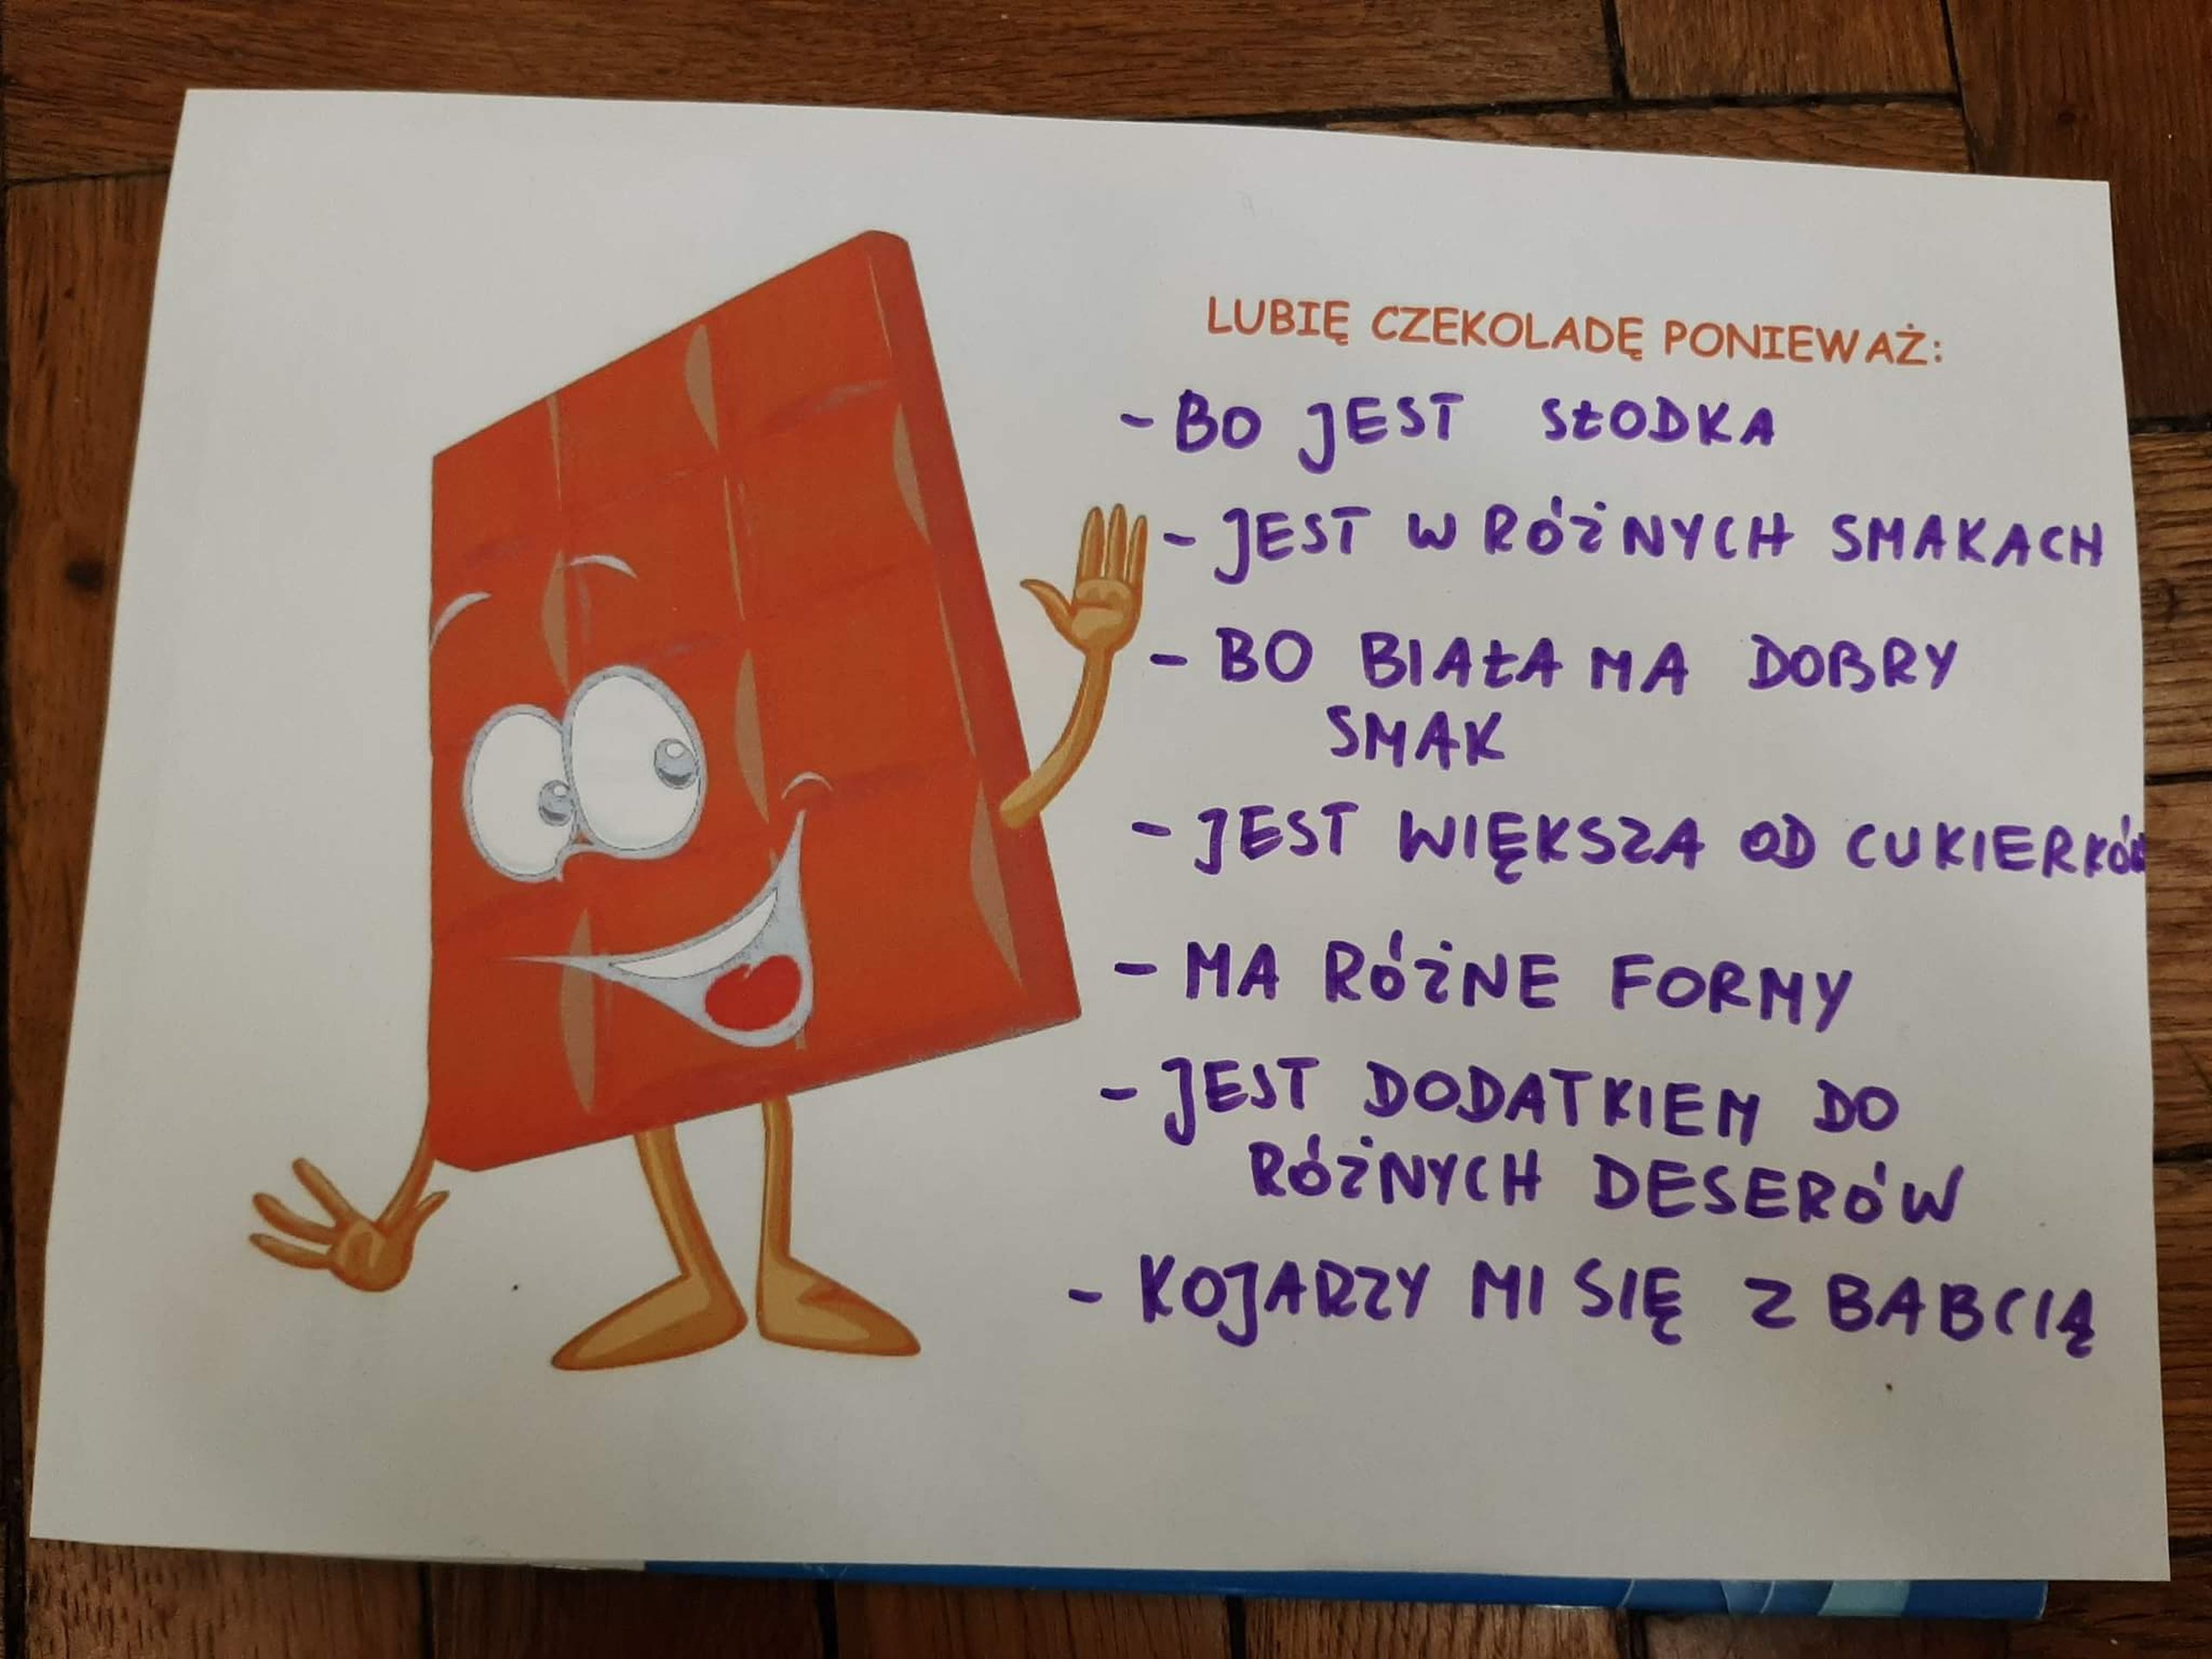 LUBIĘ CZEKOLADĘ PONIEWAŻ:
- BO JEST SŁODKA
- JEST W RÓŻNYCH SMAKACH
- BO BIAŁA MA DOBRY
SMAK
- JEST WIĘKSZA OD CUKIERKÓW
- MA RÓŻNE FORMY
- JEST DODATKIEM DO
RÓŻNYCH DESERÓW
- KOJARZY MI SIĘ Z BABCIĄ